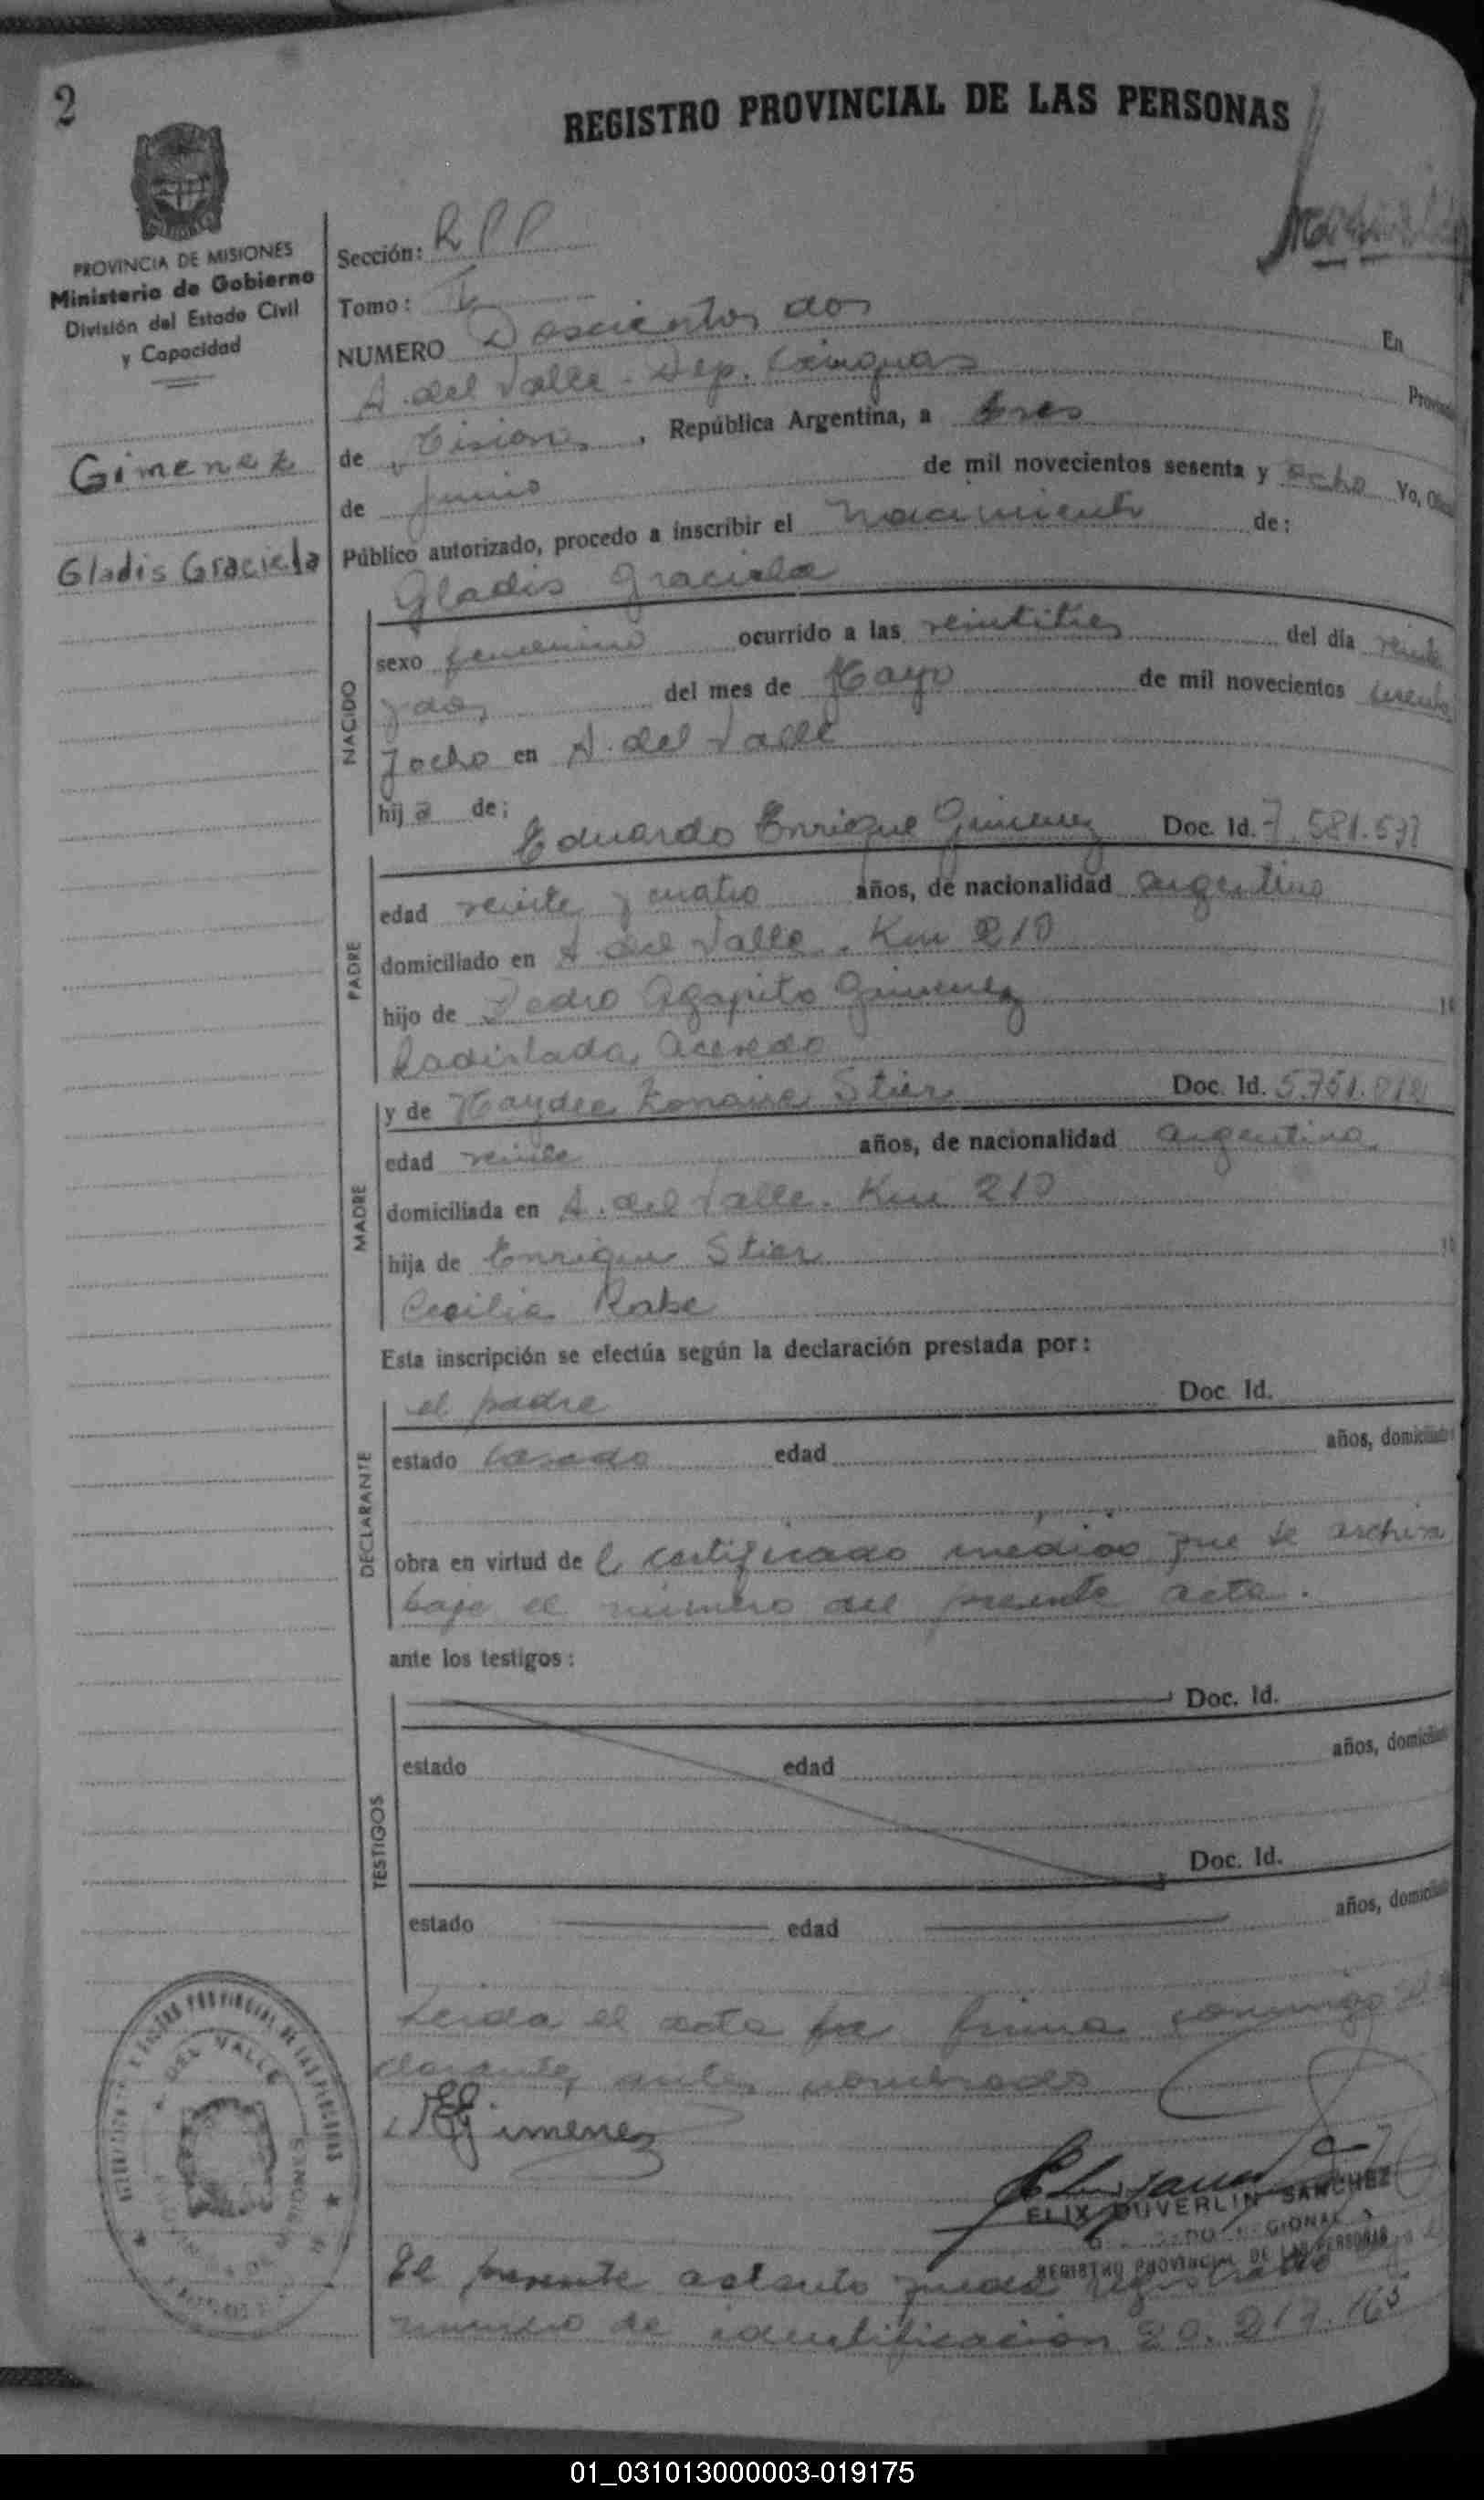 2
REGISTRO PROVINCIAL DE LAS PERSONAS
PROVINCIA DE MISIONES
Ministerio de Gobierno
División del Estado Civil
y Capacidad
Gimenez
Gladis Graciela
Sección: R P P
Tomo: II
NUMERO Doscientos dos En
A. del Valle - Dep. Cainguas Provincia
de Misiones, República Argentina, a tres
de junio de mil novecientos sesenta y ocho Yo, Oficial
Público autorizado, procedo a inscribir el nacimiento de:
Gladis Graciela
NACIDO
sexo femenino ocurrido a las veintitres del día veinte
y dos del mes de Mayo de mil novecientos sesenta
y ocho en A. del Valle
hij a de:
Eduardo Enrique Gimenez Doc. Id. 7.581.577
PADRE
edad veinte y cuatro años, de nacionalidad argentino
domiciliado en A. del Valle. Km 210
hijo de Pedro Agapito Gimenez
Ladislada Acevedo
y de Haydee Stier Doc. Id. 5.751.
MADRE
edad veinte años, de nacionalidad argentina
domiciliada en A. del Valle. Km 210
hija de Enrique Stier
Cecilia Rabe
Esta inscripción se efectúa según la declaración prestada por:
el padre Doc. Id.
DECLARANTE
estado casado edad años, domiciliado
obra en virtud de l certificado medico que se archiva
bajo el número del presente acta.
ante los testigos:
Doc. Id.
TESTIGOS
estado edad años, domiciliado
Doc. Id.
estado edad años, domiciliado
Leida el acta la firma conmigo el de
clarante, antes nombrado
EEGimenez
DEL VALLE
MISIONES
ELIX DUVERLIN SANCHEZ
REGISTRO PROVINCIAL DE LAS PERSONAS
El presente asiento queda registrado bajo el
número de identificación 20.217.165
01_031013000003-019175